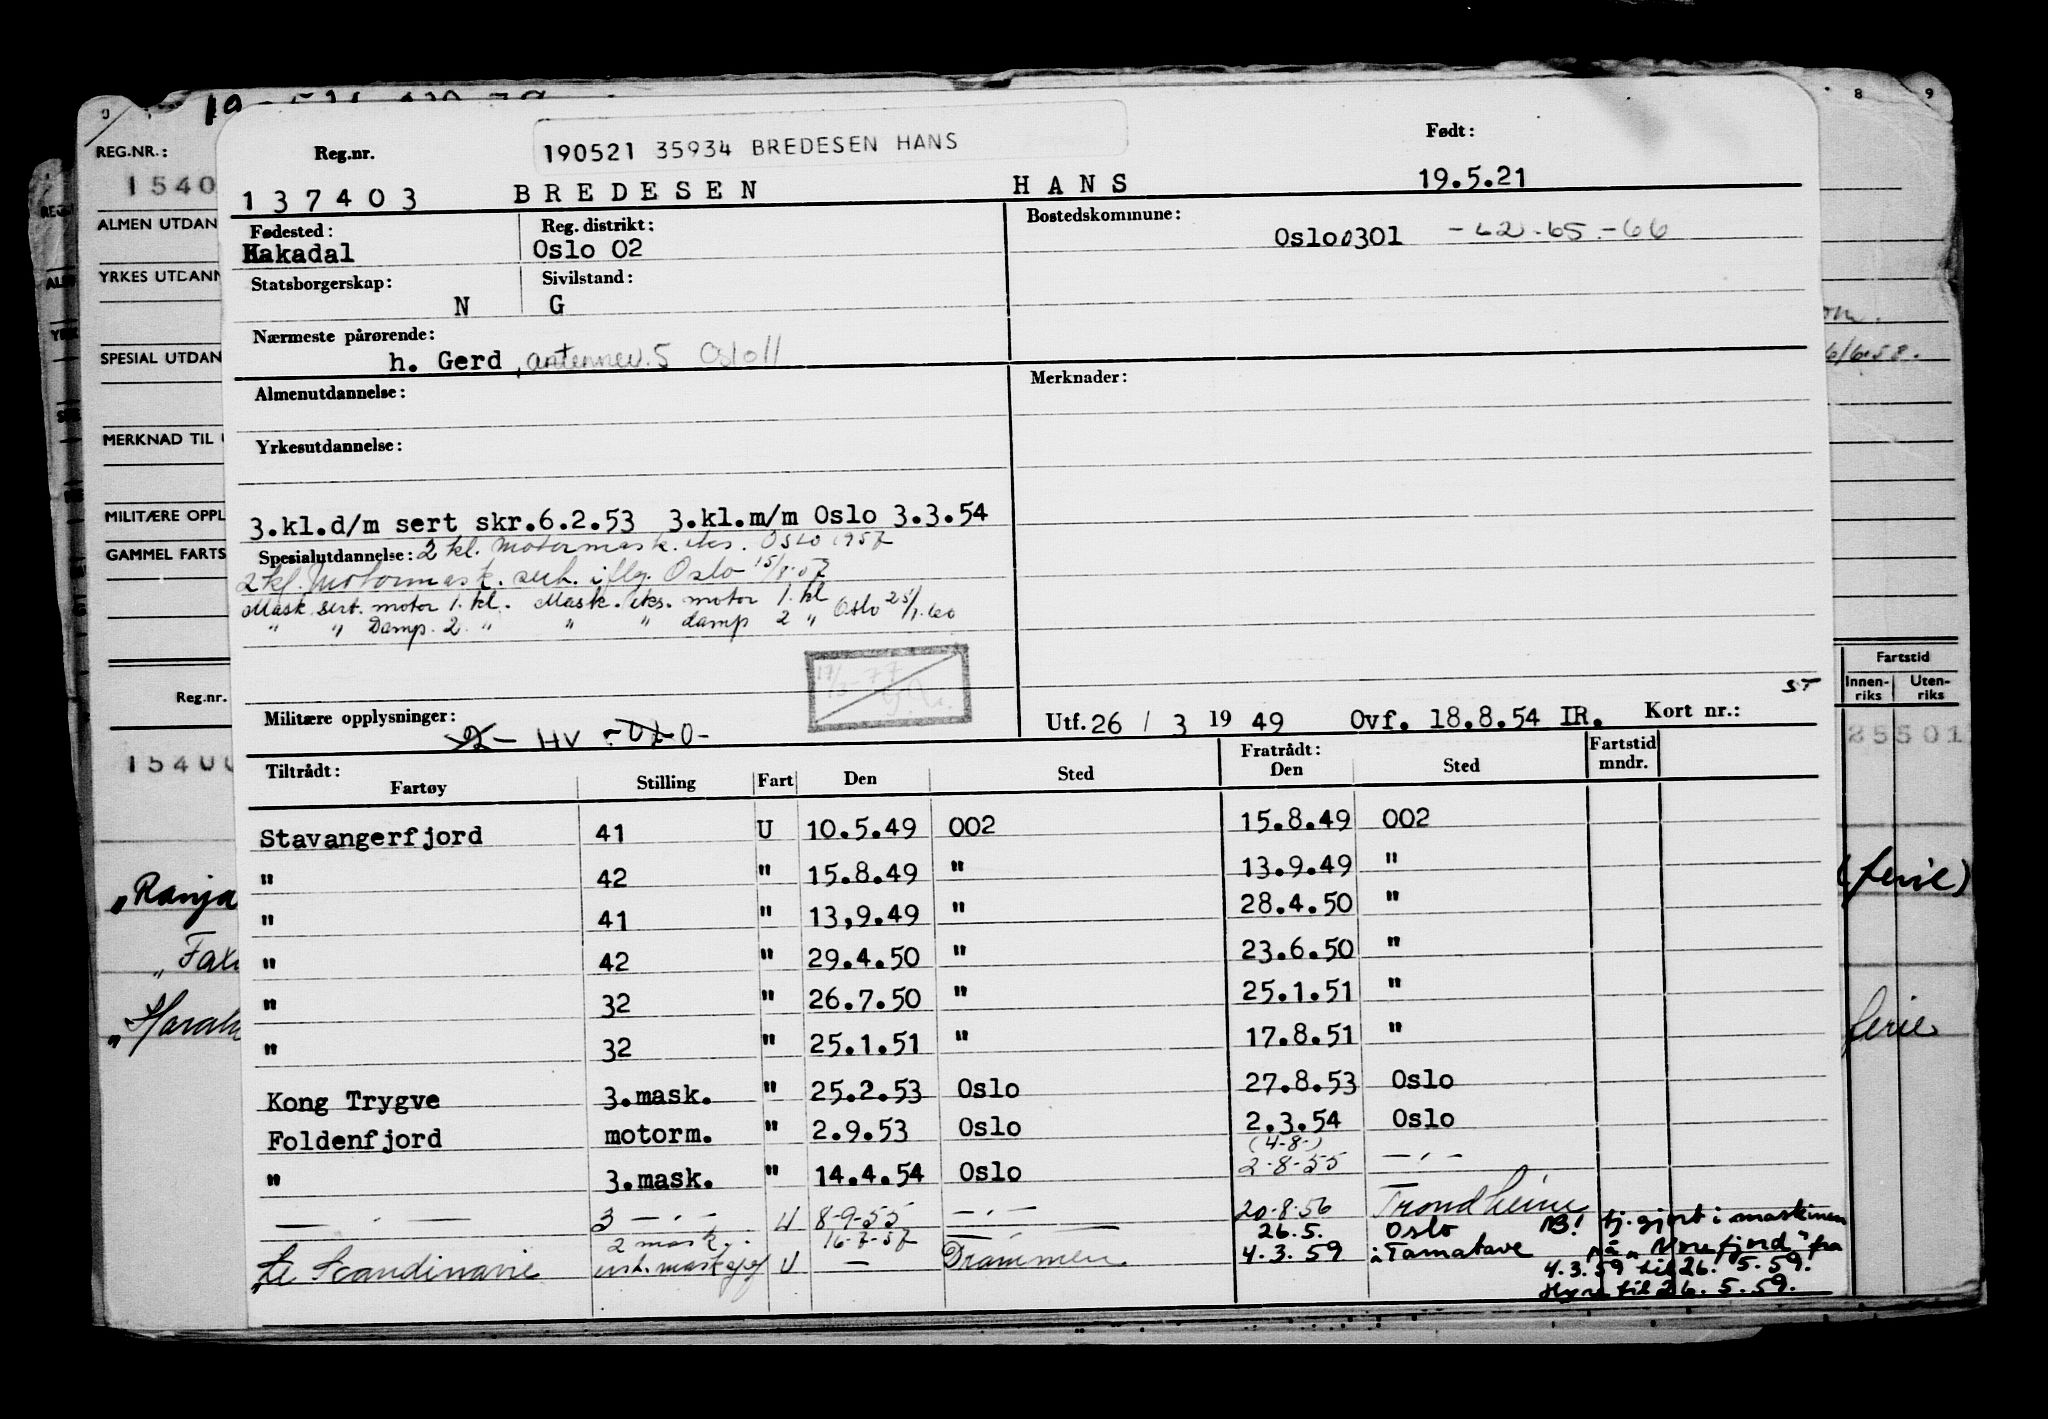 8 9
REG.NR.: Reg.nr. 190521 35934 BREDESEN HANS Født:
1540 137403 BREDESEN HANS 19.5.21
ALMEN UTDAN Fødested: Reg. distrikt: Bostedskommune:
Hakadal Oslo 02 Oslo 0301 -42-65-66
YRKES UTDANN Statsborgerskap: Sivilstand:
N G
Nærmeste pårørende:
SPESIAL UTDAN h. Gerd, antennev. 5 Oslo 11 6/6.58.
Almenutdannelse: Merknader:
MERKNAD TIL Yrkesutdannelse:
MILITÆRE OPPL 3.kl.d/m sert skr.6.2.53 3.kl.m/m Oslo 3.3.54
GAMMEL FARTS Spesialutdannelse: 2 kl. motormask. eks. Oslo 1957
2 kl. Motormask. serh. iflg. Oslo 15/8-57
Mask. sert. motor 1. kl. Mask. eks. motor 1. kl Oslo 25/1.60
" " Damp. 2. " " " damp 2 "
Fartstid
Reg.nr. Innen-riks Uten-riks
ST
Militære opplysninger: HV -0- Utf. 26 / 3 19 49 Ovf. 18.8.54 IR. Kort nr.:
15400 Tiltrådt: Fratrådt: Fartstid 25501
Fartøy Stilling Fart Den Sted Den Sted mndr.
Stavangerfjord 41 U 10.5.49 002 15.8.49 002
" 42 " 15.8.49 " 13.9.49 "
"Ranja " 41 " 13,9.49 " 28.4.50 " (ferie)
" 42 " 29.4.50 " 23.6.50 "
" 32 " 26.7.50 " 25.1.51 "
" 32 " 25.1.51 " 17.8.51 " ferie
Kong Trygve 3.mask. " 25.2.53 Oslo 27.8.53 Oslo
Foldenfjord motorm. " 2.9.53 Oslo 2.3.54 Oslo
(4-8-)
" 3.mask. " 14.4.54 Oslo 2-8-55 — " —
— " — 3 — " — U 8-9-55 — " — 20.8.56 Trondheim
2 mask. 16-7-57 — 26.5. Oslo NB! tj.gjort i maskinen
Le Scandinavie U — Drammen 4.3.59 i Tamatave på "Norefjord" fra
4.3.59 til 26.5.59.
Hyre til 26.5.59.